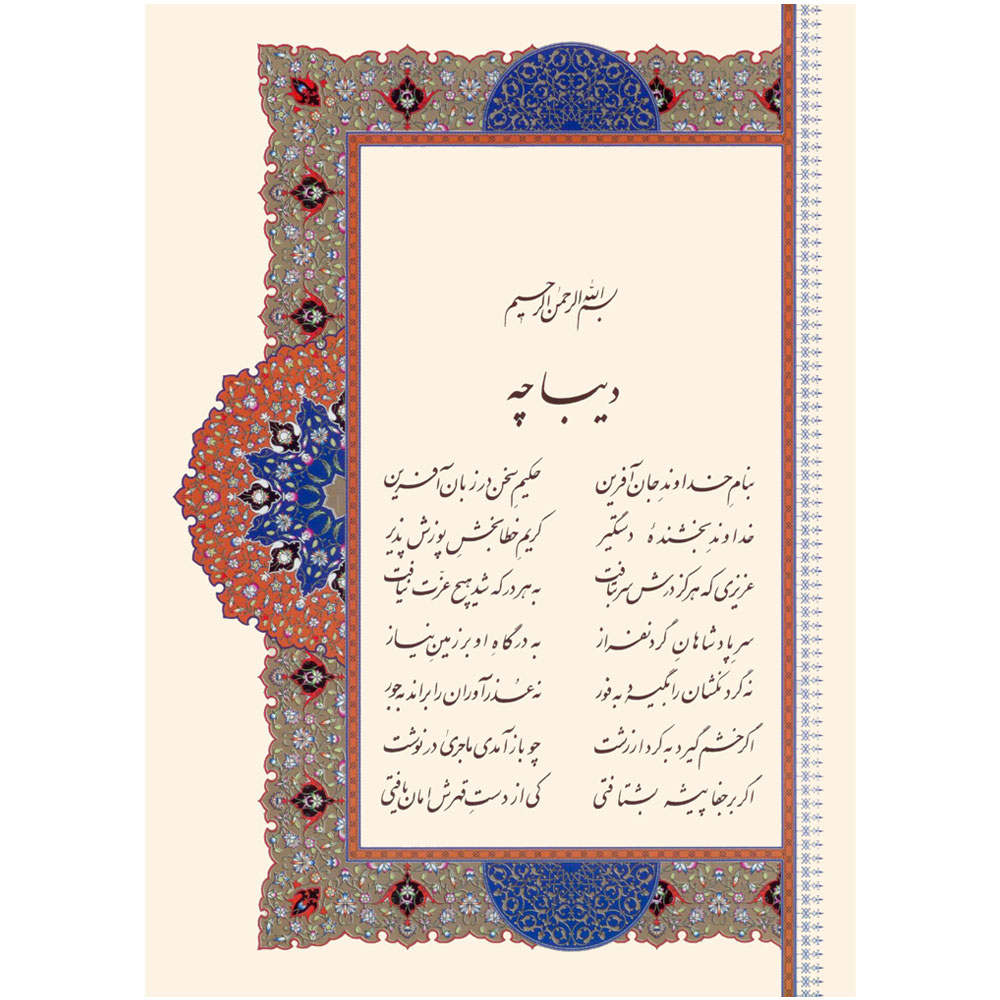 بسم الله الرحمن الرحیم
دیباچه
بنامِ خداوندِ جان آفرین حکیمِ سخن در زبان آفرین
خداوندِ بخشندهٔ دستگیر کریمِ خطابخشِ پوزش پذیر
عزیزی که هرکز درش سر بتافت به هر در که شد هیچ عزّت نیافت
سرِ پادشاهانِ گردنفراز به درگاهِ او بر زمینِ نیاز
نه گردنکشان را بگیرد به فور نه عُذرآوران را براند به جور
اگر خشم گیرد به کردار زشت چو بازآمدی ماجریٰ درنوشت
اگر بر جفا پیشه بشتافتی کی از دستِ قهرش امان یافتی